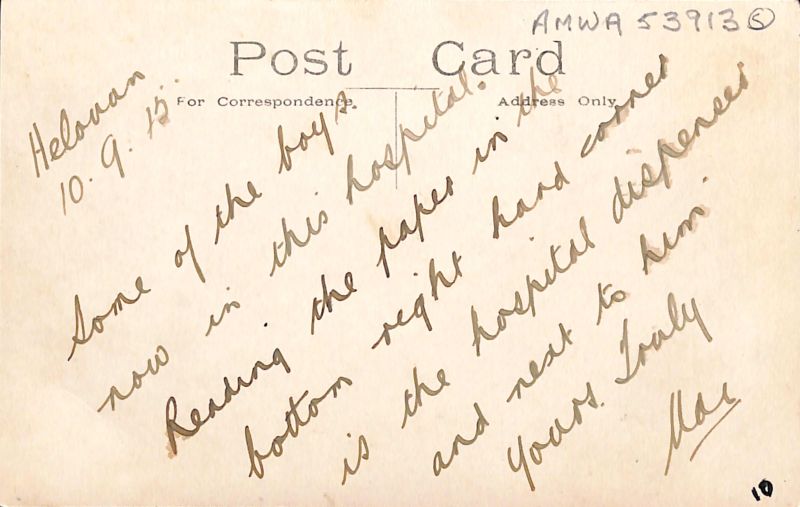 AMWA 53913 5
Post Card
For Correspondence Address Only
Helouan
10.9.15.
Some of the boys.
now in this hospital.
Reading the paper in the
bottom right hand corner
is the hospital dispenser
and next to him.
Yours. Truly
Mac
10